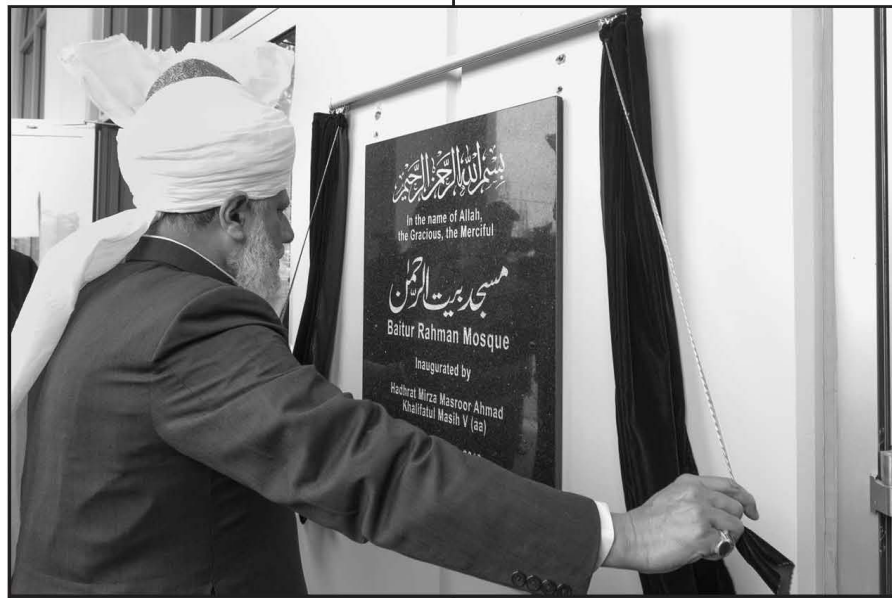 بسم الله الرحمن الرحيم
In the name of Allah,
the Gracious, the Merciful
مسجد بيت الرحمٰن
Baitur Rahman Mosque
Inaugurated by
Hadhrat Mirza Masroor Ahmad
Khalifatul Masih V (aa)